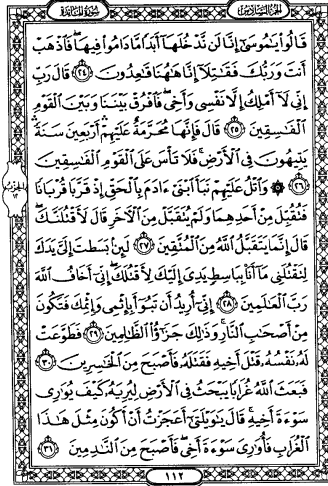 الجزء السادس سورة المائدة
قَالُوا۟ يَٰمُوسَىٰٓ إِنَّا لَن نَّدْخُلَهَآ أَبَدًا مَّا دَامُوا۟ فِيهَا فَٱذْهَبْ
أَنتَ وَرَبُّكَ فَقَٰتِلَآ إِنَّا هَٰهُنَا قَٰعِدُونَ ٢٤ قَالَ رَبِّ
إِنِّى لَآ أَمْلِكُ إِلَّا نَفْسِى وَأَخِى فَٱفْرُقْ بَيْنَنَا وَبَيْنَ ٱلْقَوْمِ
ٱلْفَٰسِقِينَ ٢٥ قَالَ فَإِنَّهَا مُحَرَّمَةٌ عَلَيْهِمْ أَرْبَعِينَ سَنَةً
يَتِيهُونَ فِى ٱلْأَرْضِ فَلَا تَأْسَ عَلَى ٱلْقَوْمِ ٱلْفَٰسِقِينَ
٢٦ ۞ وَٱتْلُ عَلَيْهِمْ نَبَأَ ٱبْنَىْ ءَادَمَ بِٱلْحَقِّ إِذْ قَرَّبَا قُرْبَانًا
فَتُقُبِّلَ مِنْ أَحَدِهِمَا وَلَمْ يُتَقَبَّلْ مِنَ ٱلْءَاخَرِ قَالَ لَأَقْتُلَنَّكَ
قَالَ إِنَّمَا يَتَقَبَّلُ ٱللَّهُ مِنَ ٱلْمُتَّقِينَ ٢٧ لَئِنۢ بَسَطتَ إِلَىَّ يَدَكَ
لِتَقْتُلَنِى مَآ أَنَا۠ بِبَاسِطٍ يَدِىَ إِلَيْكَ لِأَقْتُلَكَ إِنِّىٓ أَخَافُ ٱللَّهَ
رَبَّ ٱلْعَٰلَمِينَ ٢٨ إِنِّىٓ أُرِيدُ أَن تَبُوٓأَ بِإِثْمِى وَإِثْمِكَ فَتَكُونَ
مِنْ أَصْحَٰبِ ٱلنَّارِ وَذَٰلِكَ جَزَٰٓؤُا۟ ٱلظَّٰلِمِينَ ٢٩ فَطَوَّعَتْ
لَهُۥ نَفْسُهُۥ قَتْلَ أَخِيهِ فَقَتَلَهُۥ فَأَصْبَحَ مِنَ ٱلْخَٰسِرِينَ ٣٠
فَبَعَثَ ٱللَّهُ غُرَابًا يَبْحَثُ فِى ٱلْأَرْضِ لِيُرِيَهُۥ كَيْفَ يُوَٰرِى
سَوْءَةَ أَخِيهِ قَالَ يَٰوَيْلَتَىٰٓ أَعَجَزْتُ أَنْ أَكُونَ مِثْلَ هَٰذَا
ٱلْغُرَابِ فَأُوَٰرِىَ سَوْءَةَ أَخِى فَأَصْبَحَ مِنَ ٱلنَّٰدِمِينَ ٣١
١١٢